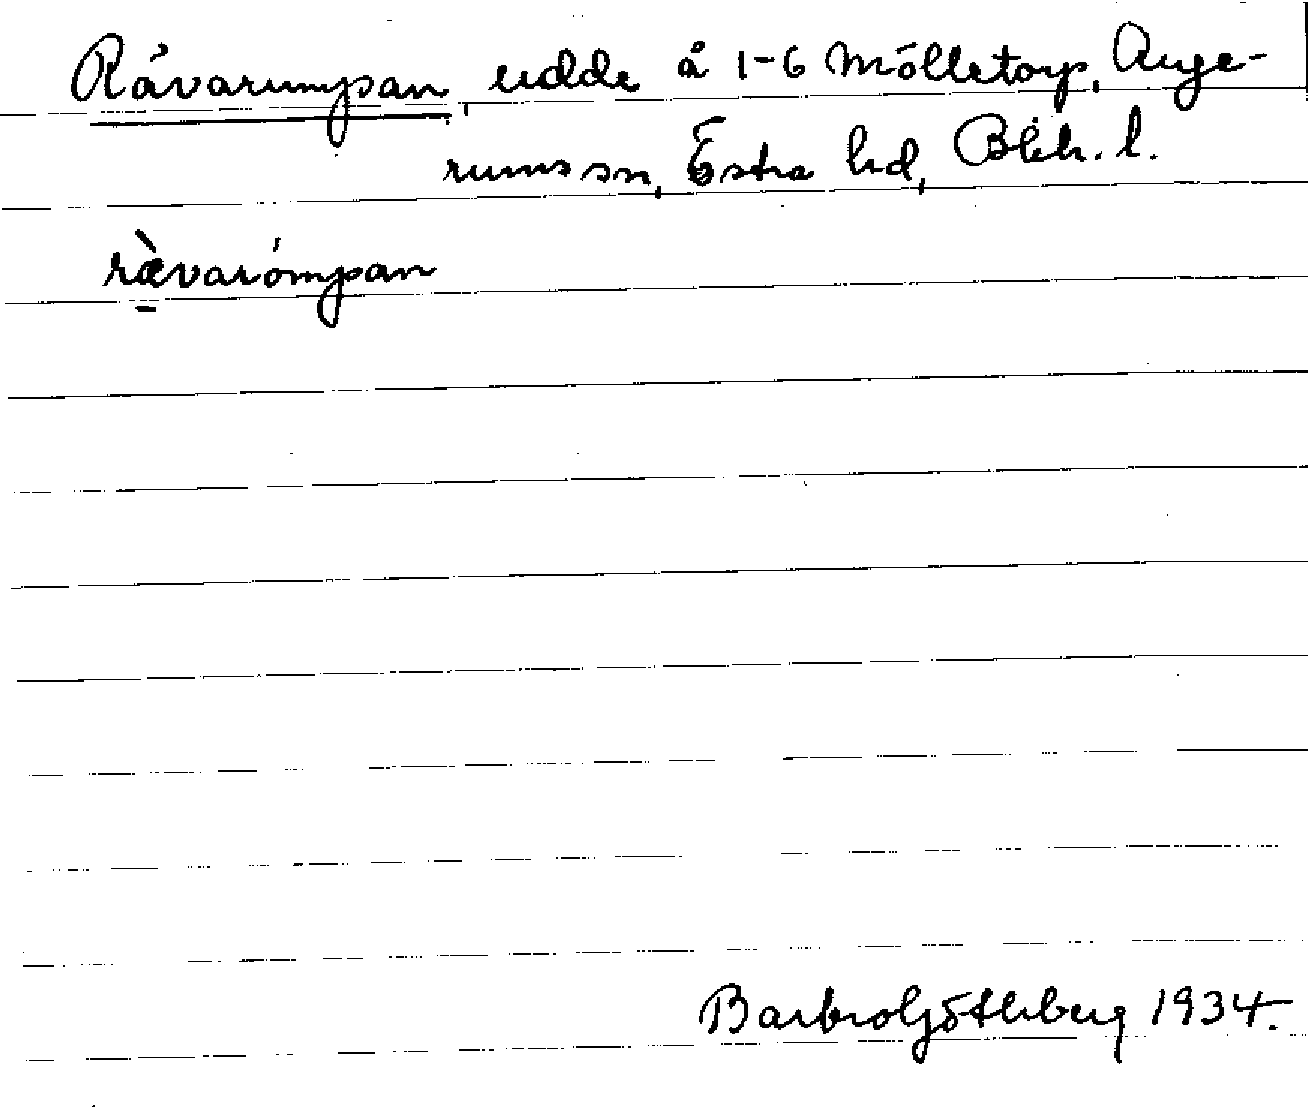 Rävarumpan, udde å 1-6 Mölletorp, Auge-
rums sn, Östra hd, Blek. l.
rævarómpan
Barbro Götlberg 1934.